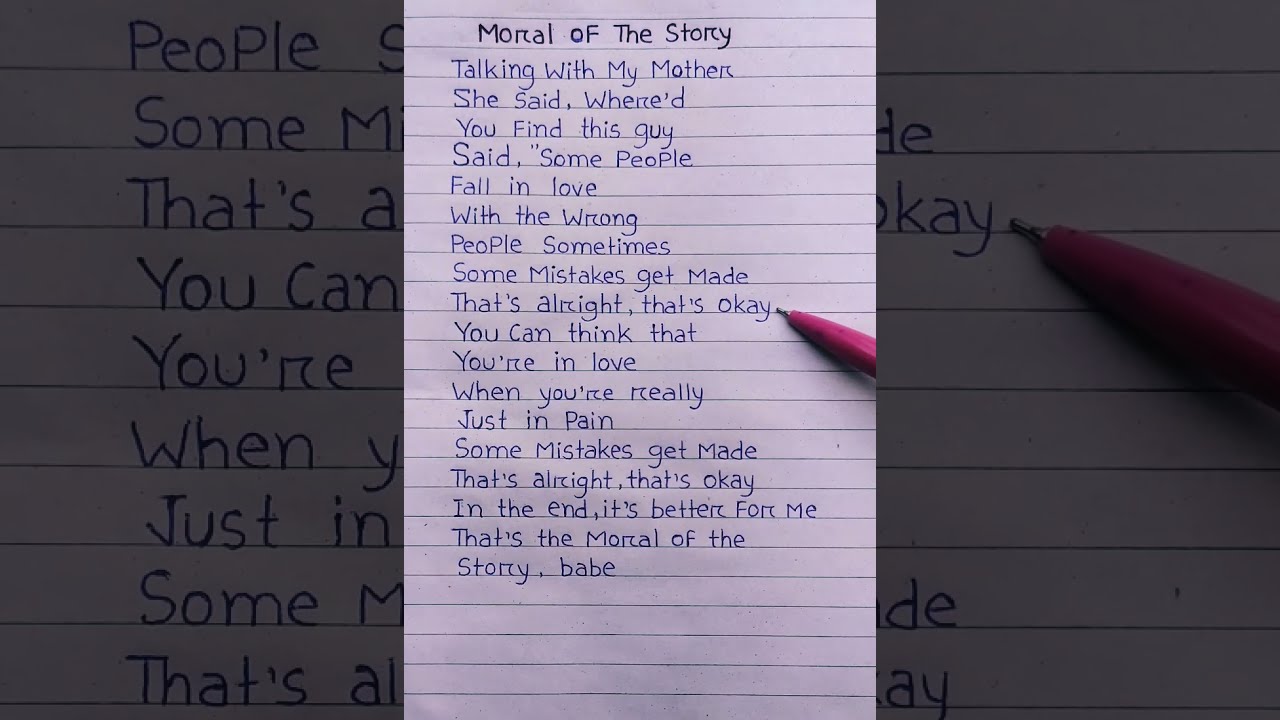 Moral oF The Story
Talking With My Mother
She Said, Where'd
You Find this guy
Said, "Some PeoPle
Fall in love
With the Wrong
PeoPle Sometimes
Some Mistakes get Made
That's alright, that's Okay
You Can think that
You're in love
When you're really
Just in Pain
Some Mistakes get Made
That's alright, that's Okay
In the end, it's better For Me
That's the Moral oF the
Story, babe